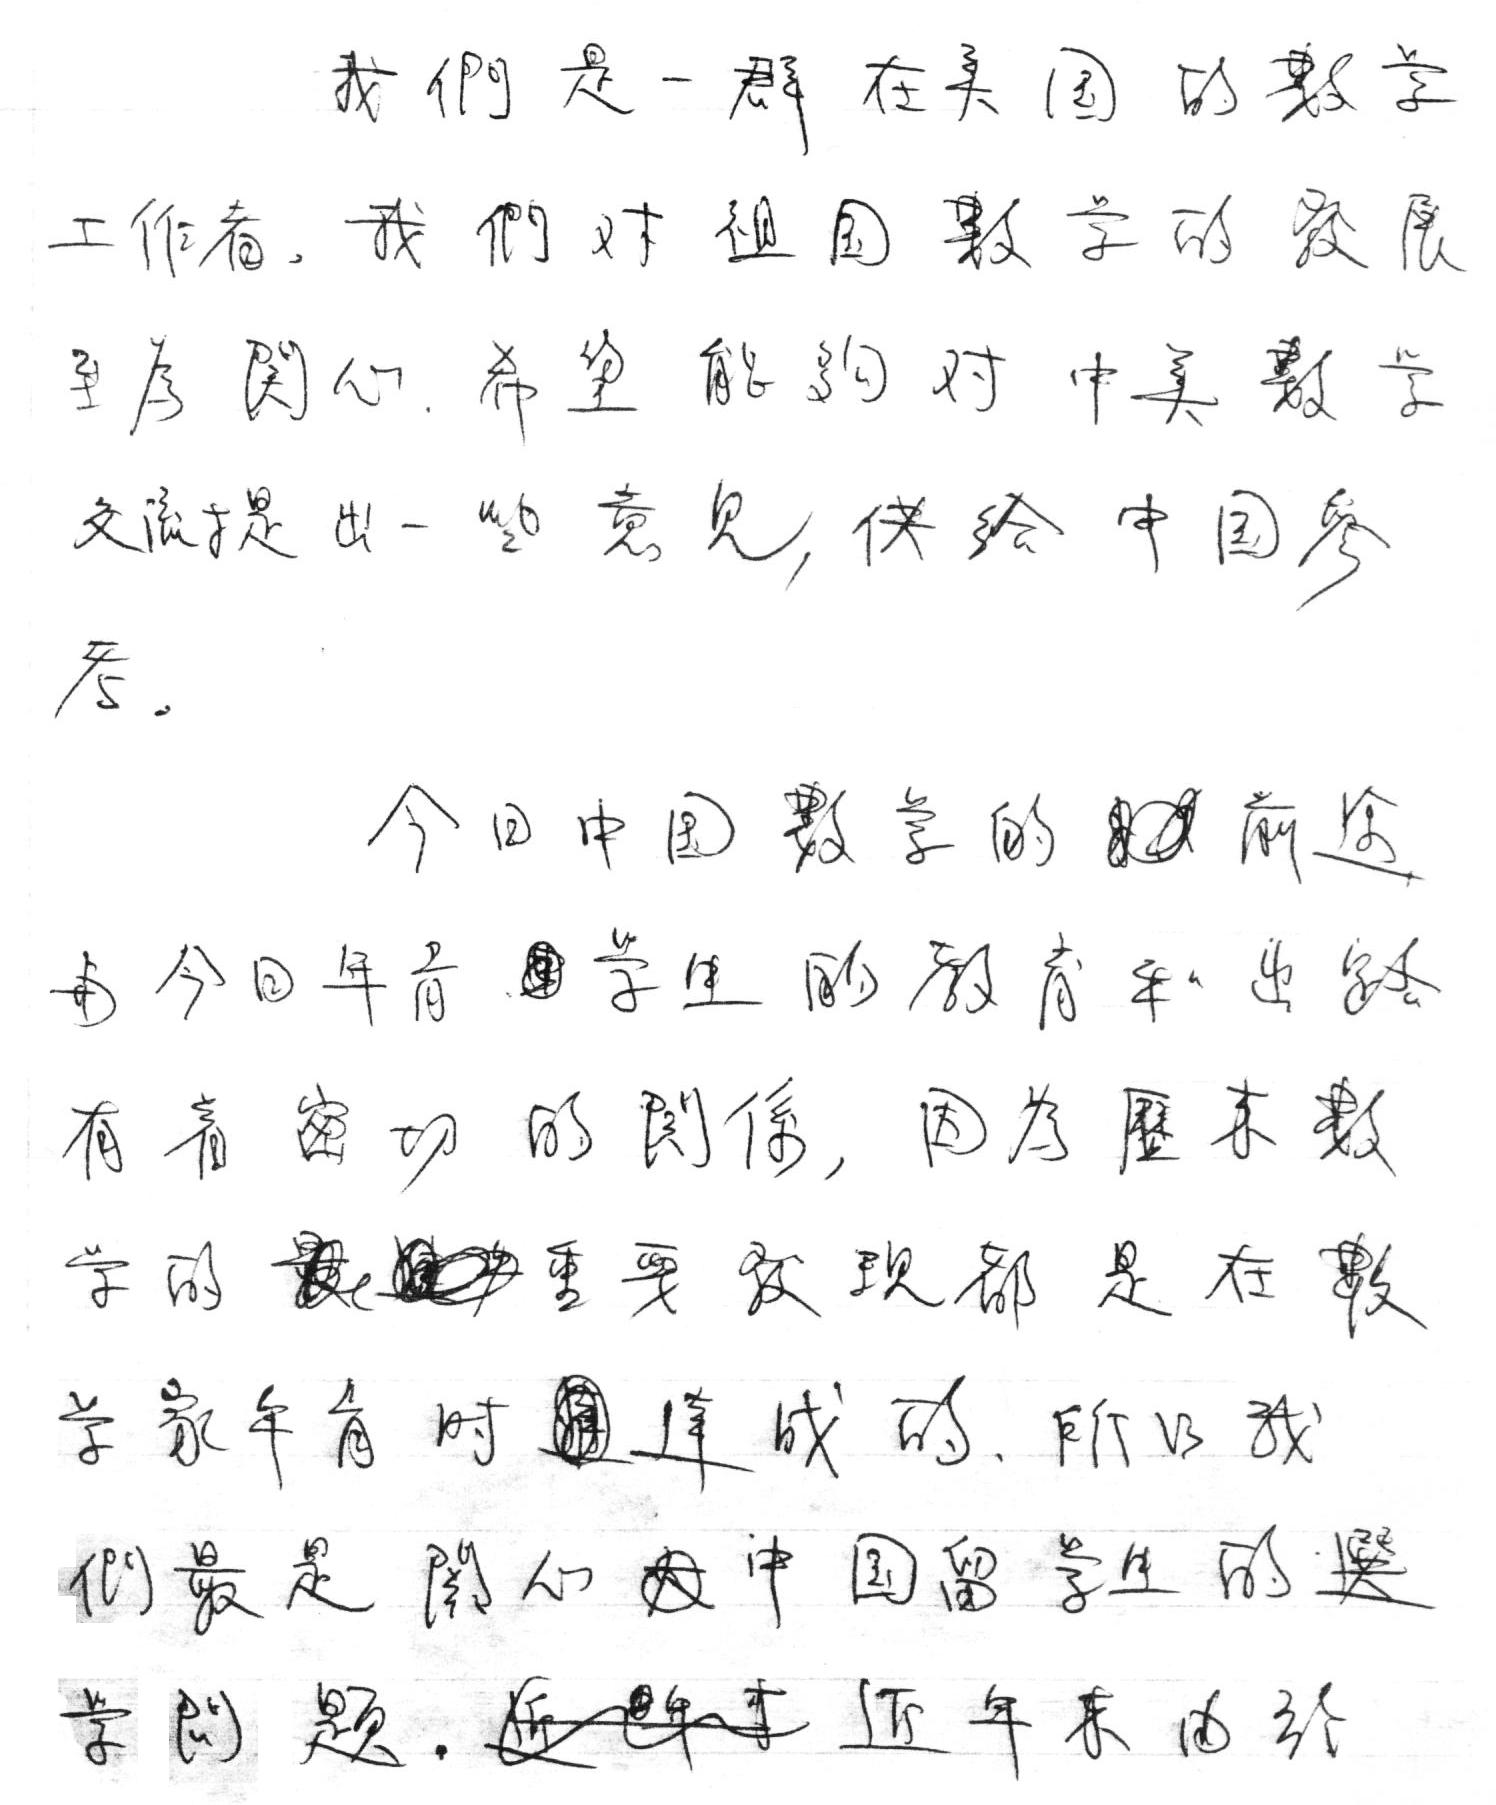 我們是一群在美国的數学
工作者。我們对祖国數学的發展
至为関心.希望能夠对中美數学
交流提出一些意見,供給中国參
考。
今日中国數学的前途
与今日年青学生的教育和出路
有着密切的関係,因为歷来數
学的重要發現都是在數
学家年青时達成的.所以我
們最是關心中国留学生的選
学問題.近年来近年来由於